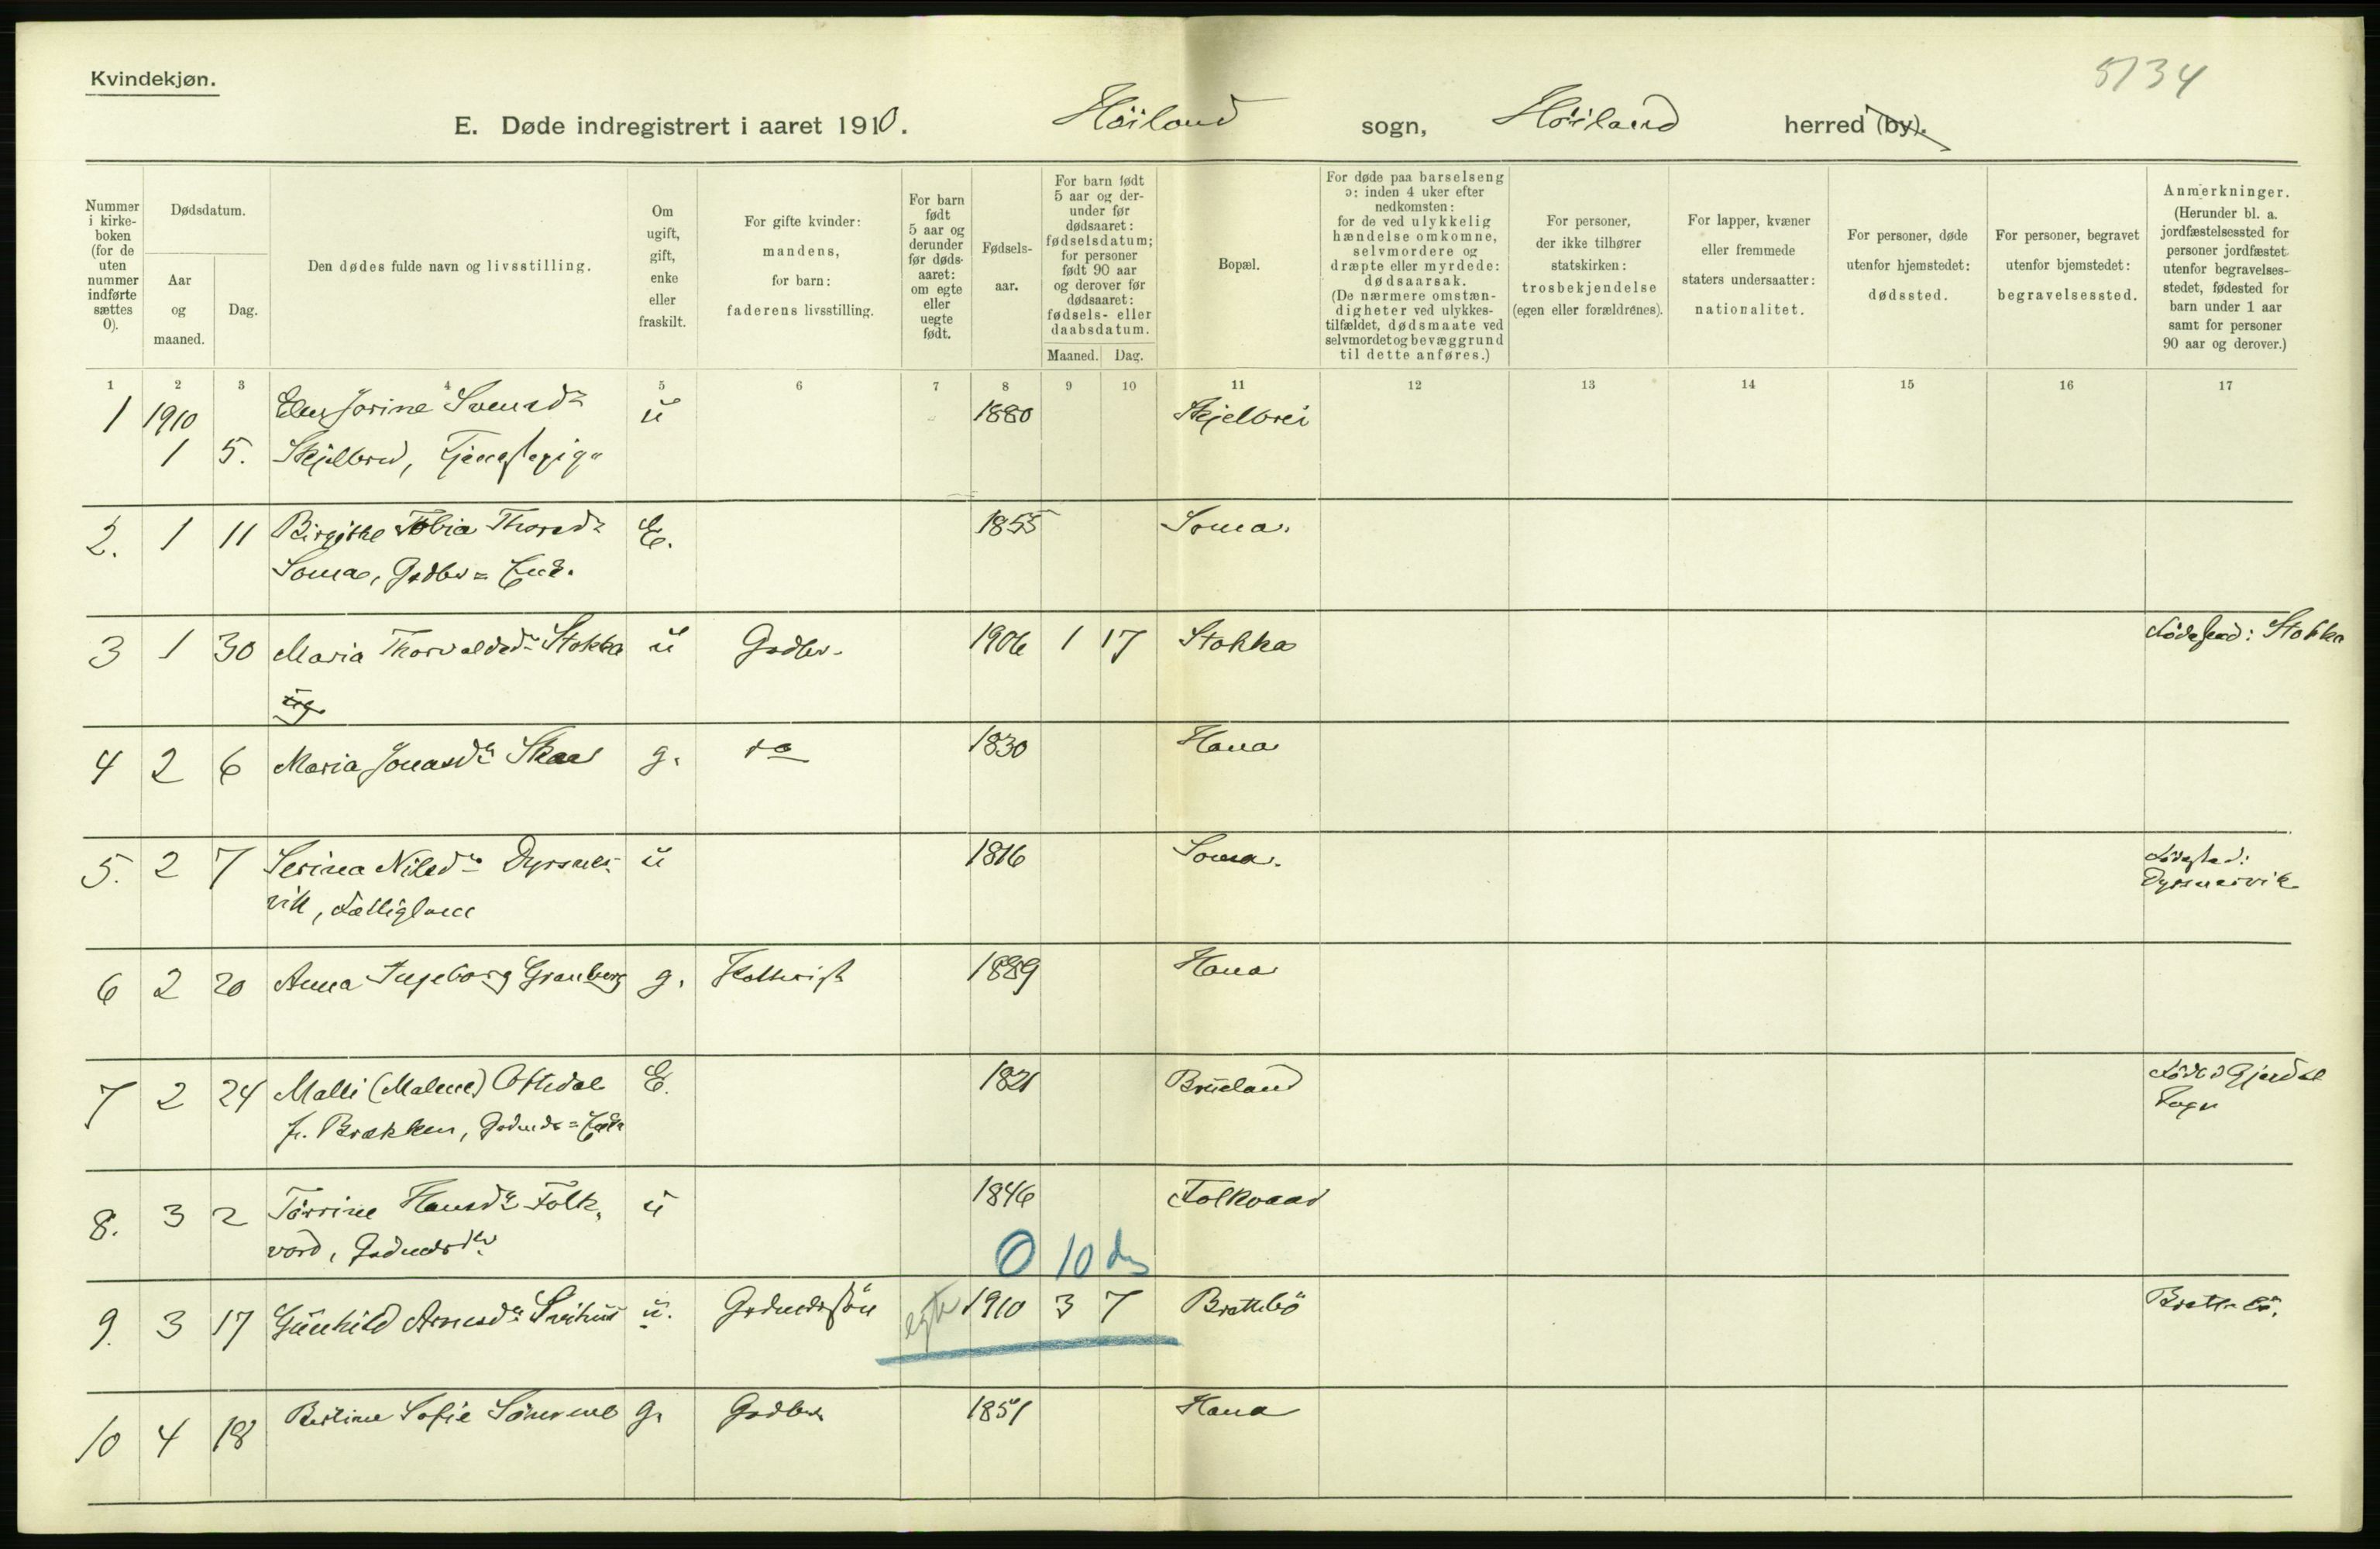 Kvindekjøn.
5134
E. Døde indregistrert i aaret 1910. Höiland sogn, Höiland herred (by).
Nummer i kirke-boken (for de uten nummer indførte sættes 0).
Dødsdatum.
Aar og maaned.
Dag.
Den dødes fulde navn og livsstilling.
Om ugift, gift, enke eller fraskilt.
For gifte kvinder: mandens, for barn: faderens livsstilling.
For barn født 5 aar og derunder før døds-aaret: om egte eller uegte født.
Fødsels-aar.
For barn født 5 aar og der-under før dødsaaret: fødselsdatum; for personer født 90 aar og derover før dødsaaret: fødsels- eller daabsdatum.
Maaned. Dag.
Bopæl.
For døde paa barselseng ɔ: inden 4 uker efter nedkomsten: for de ved ulykkelig hændelse omkomne, selvmordere og dræpte eller myrdede: dødsaarsak. (De nærmere omstæn-digheter ved ulykkes-tilfældet, dødsmaate ved selvmordet og bevæggrund til dette anføres.)
For personer, der ikke tilhører statskirken: trosbekjendelse (egen eller forældrenes).
For lapper, kvæner eller fremmede staters undersaatter: nationalitet.
For personer, døde utenfor hjemstedet: dødssted.
For personer, begravet utenfor bjemstedet: begravelsessted.
Anmerkninger. (Herunder bl. a. jordfæstelsessted for personer jordfæstet utenfor begravelses-stedet, fødested for barn under 1 aar samt for personer 90 aar og derover.)
1 2 3 4 5 6 7 8 9 10 11 12 13 14 15 16 17
1 1910 Jorine Svensdr ü 1880 Skjelbrei
1 5. Skjelbred,
2. 1 11 Birgithe Tobia Thorsdr E. 1855 Soma.
Soma, Gdbr = Enk.
3 1 30 Maria Thorvaldsdr Stokka ü Gdbr. 1906 1 17 Stokka Födested: Stokka
ug.
4 2 6 Maria Jonasdr Skaar g. do 1830 Hana
5. 2 7 Serina Nilsdr Dyrsnes- ü 1816 Soma. Födested:
vik, Fattiglem Dyrsnesvik
6 2 20 Anna Ingeborg Granberg g. 1889 Hana
7 2 24 Malli (Malene) Oftedal E. 1821 Brüeland Född i Gjesdal
f. Brækken, Gdmds = Enke Sogn
8. 3 2 Törrine Hansdr Folk- ü 1846 Folkvaard
vord, Gdmdsdtr
0 10 ds
9. 3 17 Günhild Arnesdr Svihus ü. Gdmdssön egte 1910 3 7 Brattebö Brattebö.
10 4 18 Bertine Sofie g. Gdbr. 1851 Hana